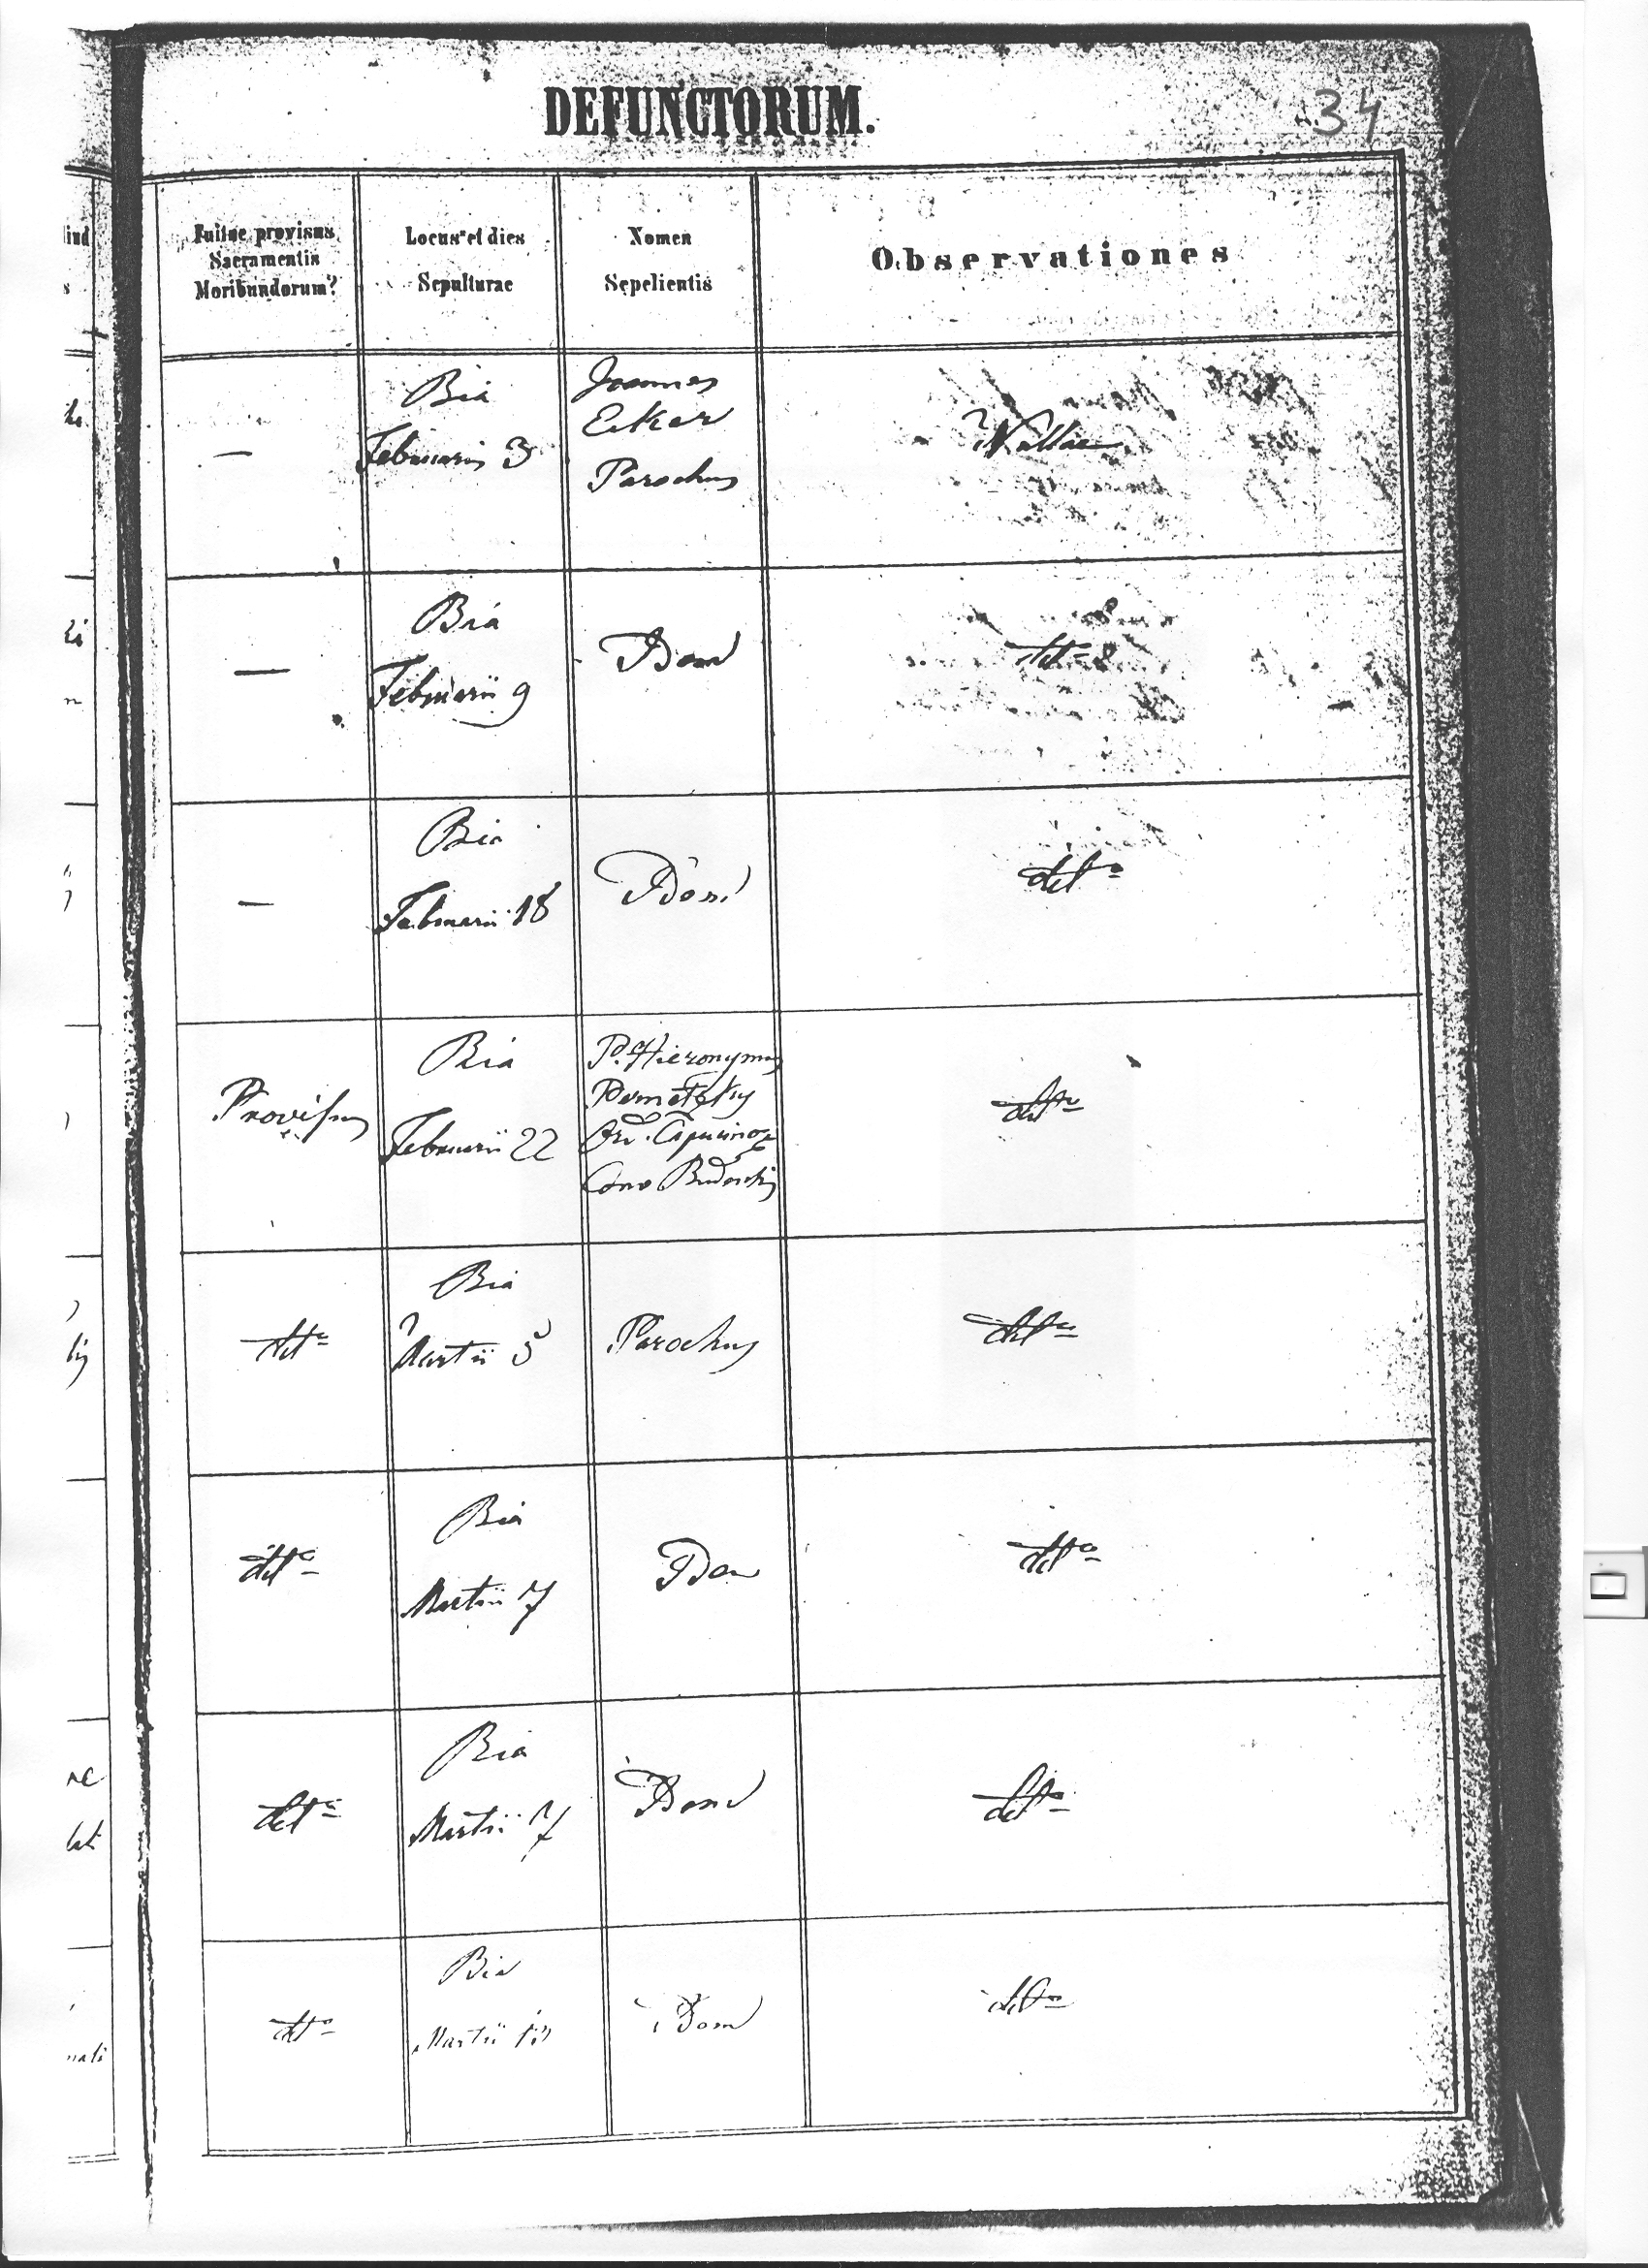 DEFUNCTORUM.
34
Fuitne provisus Sacramentis Moribundorum?
Locus et dies Sepulturae
Nomen Sepelientis
Observationes
—
Bia
Februarii 3
Joannes
Ecker
Parochus
Nullae
—
Bia
Februarii 9
Idem
detto
—
Bia
Februarii 18
Idem
detto
Provisus
Bia
Februarii 22
P. Hieronymus
Ord. Capucinor
Conv Budensis
detto
detto
Bia
Martii 5
Parochus
detto
detto
Bia
Martii 7
Idem
detto
detto
Bia
Martii 7
Idem
detto
detto
Bia
Martii
Idem
detto